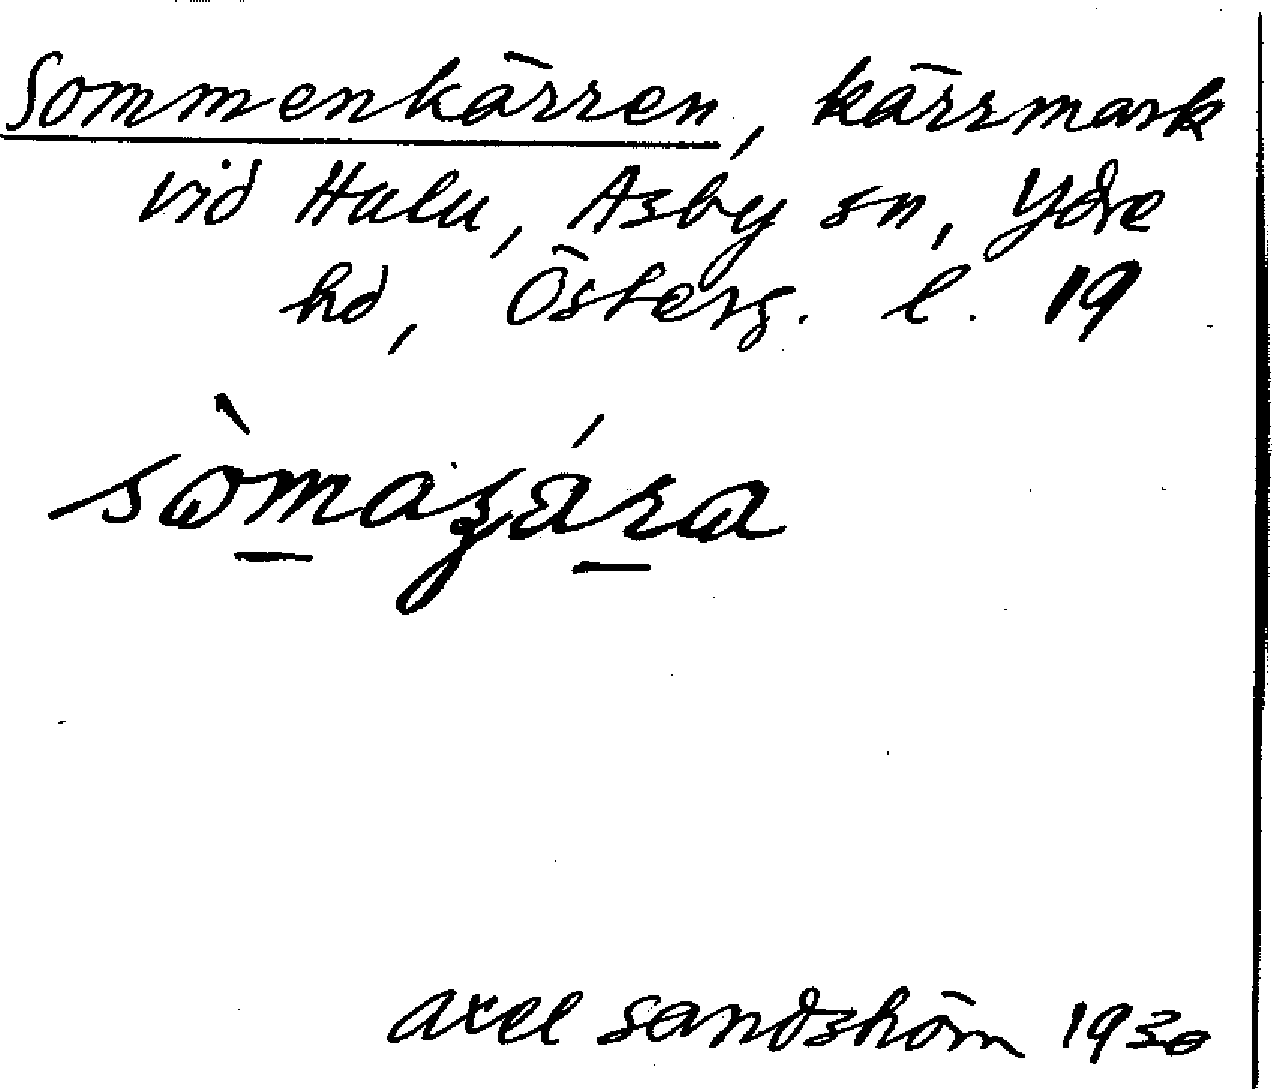 Sommenkärren, kärrmark
vid Hulu, Asby sn, Ydre
hd, Österg. l. 19
axel sandström 1930